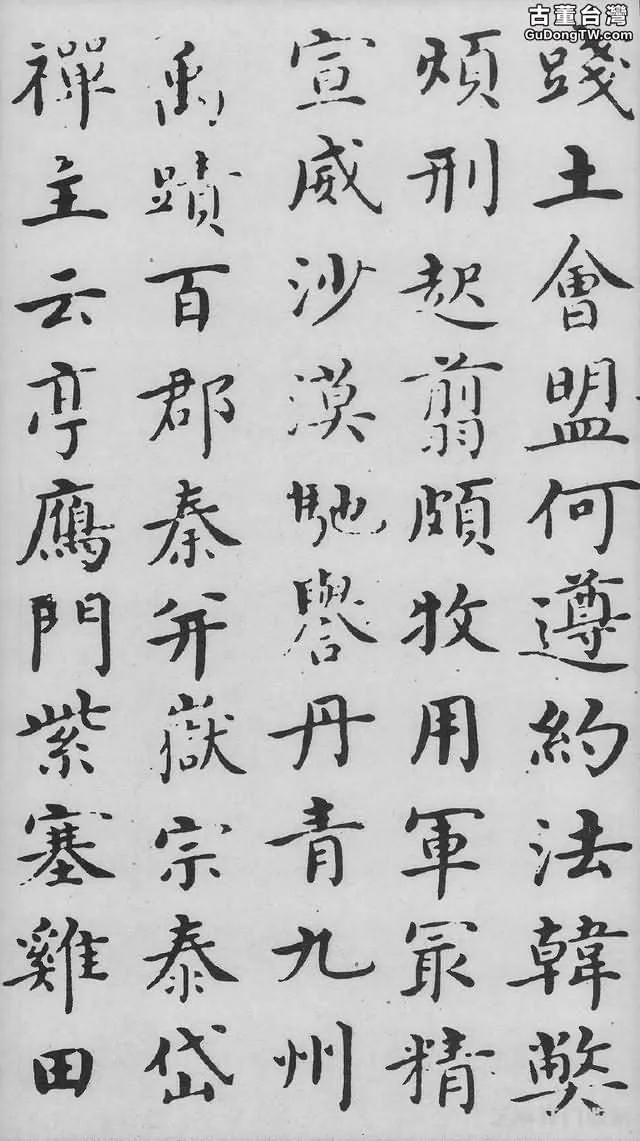 古董台灣
GuDongTW.com
踐土會盟何遵約法韓弊
煩刑起翦頗牧用軍冣精
宣威沙漠馳譽丹青九州
禹蹟百郡秦并嶽宗泰岱
禪主云亭鴈門紫塞雞田